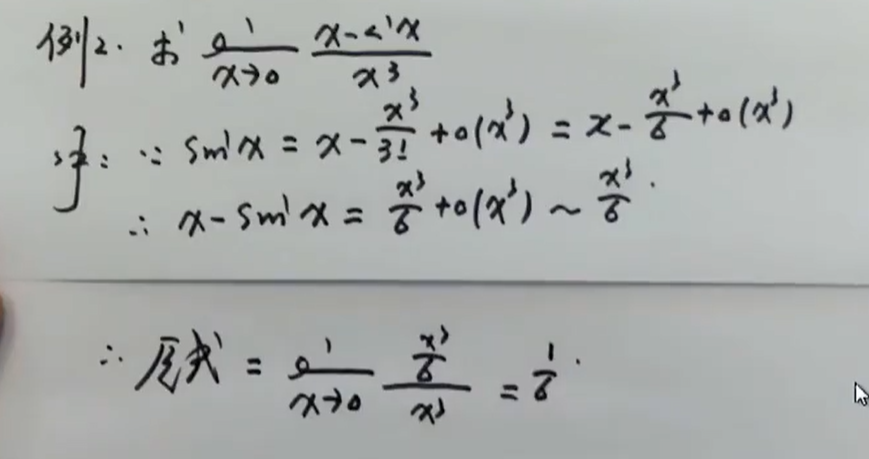 例2. 求 lim x→0 (x - sin x)/x³
解: ∵ sin x = x - x³/3! + o(x³) = x - x³/6 + o(x³)
∴ x - sin x = x³/6 + o(x³) ~ x³/6.
∴ 原式 = lim x→0 (x³/6)/x³ = 1/6.